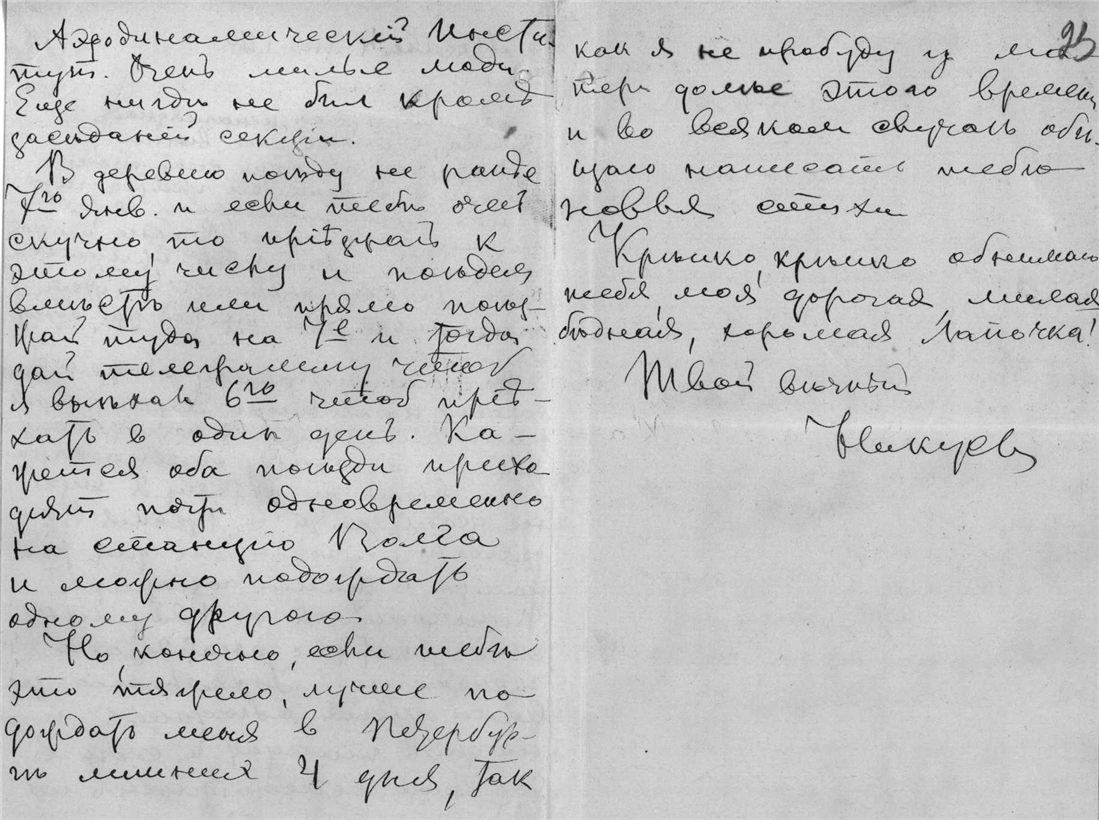 Аэродинамическій Инсти-
тут. Очень милые люди.
Еще нигдѣ не был кромѣ
засѣданій секціи.
В деревню поѣду не раньше
7го Янв. и если тебѣ очень
скучно то пріѣзжай к
этому числу и поѣдем
вмѣстѣ или прямо поѣз-
жай туда на 7е и тогда
дай телеграмму чтоб
я выѣхал 6го чтоб пріѣ-
хать в один день. Ка-
жется оба поѣзда прихо-
дят почти одновременно
на станцію Волга
и можно подождать
одному другого.
Но, конечно, если тебѣ
это тяжело, лучше по-
дождать меня в Петербур-
гѣ лишних 4 дня, так
25
как я не пробуду у ма-
тери дольше этого времени
и во всяком случаѣ обѣ-
щаю написать тебѣ
новыя стихи
Крѣпко, крѣпко обнимаю
тебя, моя дорогая, милая
бѣдная, хромая Лапочка!
Твой вѣчный